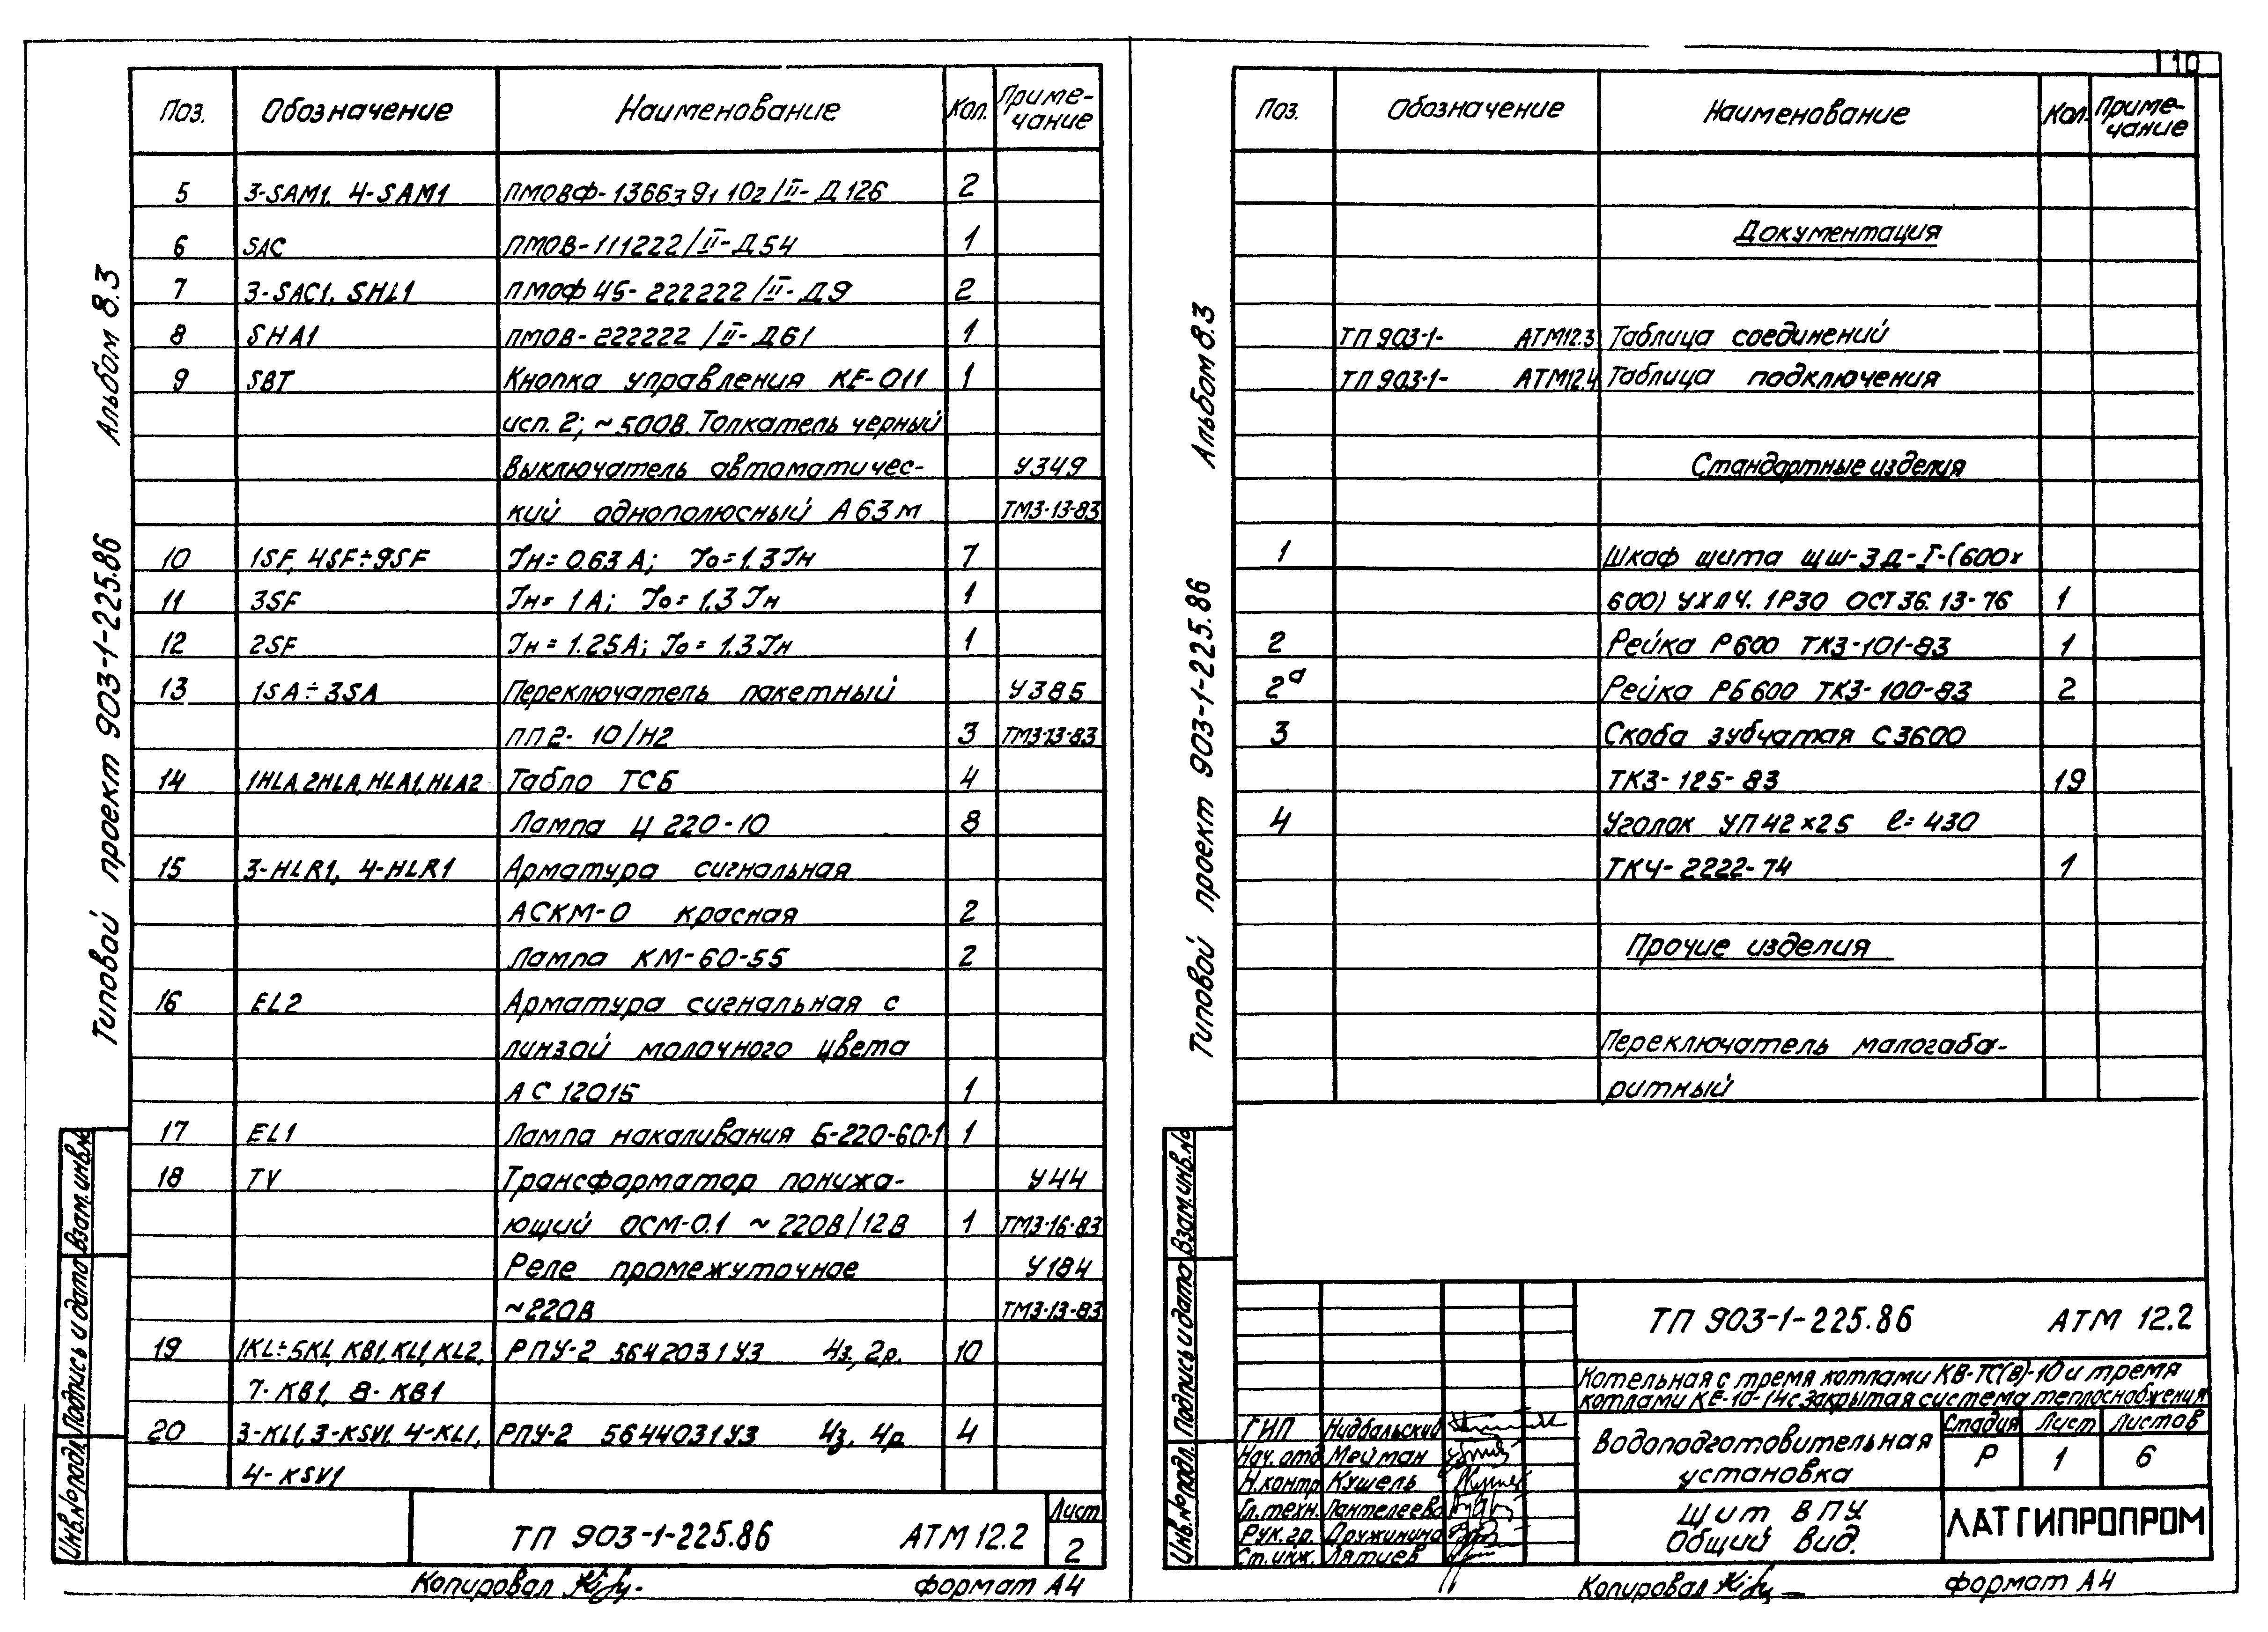 10
Альбом 8.3
Типовой проект 903-1-225.86
Поз. Обозначение Наименование Кол. Приме-
чание
5 3-SAM1, 4-SAM1 ПМОВФ-1366391102/II-Д126 2
6 SAC ПМОВ-111222/II-Д54 1
7 3-SAC1, SHL1 ПМОФ45-222222/II-Д9 2
8 SHA1 ПМОВ-222222/II-Д61 1
9 SBT Кнопка управления КЕ-011 1
исп. 2; ~500В. Толкатель черный
Выключатель автоматичес- У349
кий однополюсный А63м ТМ3-13-83
10 1SF, 4SF÷9SF Iн=0.63А; Iо=1.3Iн 7
11 3SF Iн=1А; Iо=1.3Iн 1
12 2SF Iн=1.25А; Iо=1.3Iн 1
13 1SA÷3SA Переключатель пакетный У385
ПП2-10/Н2 3 ТМ3-13-83
14 1HLA, 2HLA, HLA1, HLA2 Табло ТСБ 4
Лампа Ц220-10 8
15 3-HLR1, 4-HLR1 Арматура сигнальная
АСКМ-0 красная 2
Лампа КМ-60-55 2
16 EL2 Арматура сигнальная с
линзой молочного цвета
АС12015 1
17 EL1 Лампа накаливания Б-220-60-1 1
18 TV Трансформатор понижа- У44
ющий ОСМ-0.1 ~220В/12В 1 ТМ3-16-83
Реле промежуточное У184
~220В ТМ3-13-83
19 1KL÷5KL, KB1, KL1, KL2, РПУ-2 5642031У3 4з, 2р. 10
7-KB1, 8-KB1
20 3-KL1, 3-KSV1, 4-KL1, РПУ-2 5644031У3 4з, 4р 4
4-KSV1
ТП 903-1-225.86 АТМ 12.2 Лист
2
Копировал формат А4
Инв.№ подл. Подпись и дата Взам.инв.№
Альбом 8.3
Типовой проект 903-1-225.86
Поз. Обозначение Наименование Кол. Приме-
чание
Документация
ТП 903-1- АТМ12.3 Таблица соединений
ТП 903-1- АТМ12.4 Таблица подключения
Стандартные изделия
1 Шкаф щита ЩШ-ЗД-I-(600х
600) УХЛ4. IP30 ОСТ36.13-76 1
2 Рейка Р600 ТК3-101-83 1
2а Рейка РБ600 ТК3-100-83 2
3 Скоба зубчатая С3600
ТК3-125-83 19
4 Уголок УП42×25 l=430
ТК4-2222-74 1
Прочие изделия
Переключатель малогаба-
ритный
ТП 903-1-225.86 АТМ 12.2
Котельная с тремя котлами КВ-ТС(В)-10 и тремя
котлами КЕ-10-14с закрытая система теплоснабжения
ГИП Нидбальский
Нач. отд Мейман
Н.контр Кушель
Гл.техн. Пантелеева
Рук.гр. Дружинина
Ст.инж. Лятиев
Водоподготовительная
установка
Стадия Лист Листов
Р 1 6
Щит ВПУ.
Общий вид.
ЛАТГИПРОПРОМ
Копировал формат А4
Инв.№ подл. Подпись и дата Взам.инв.№